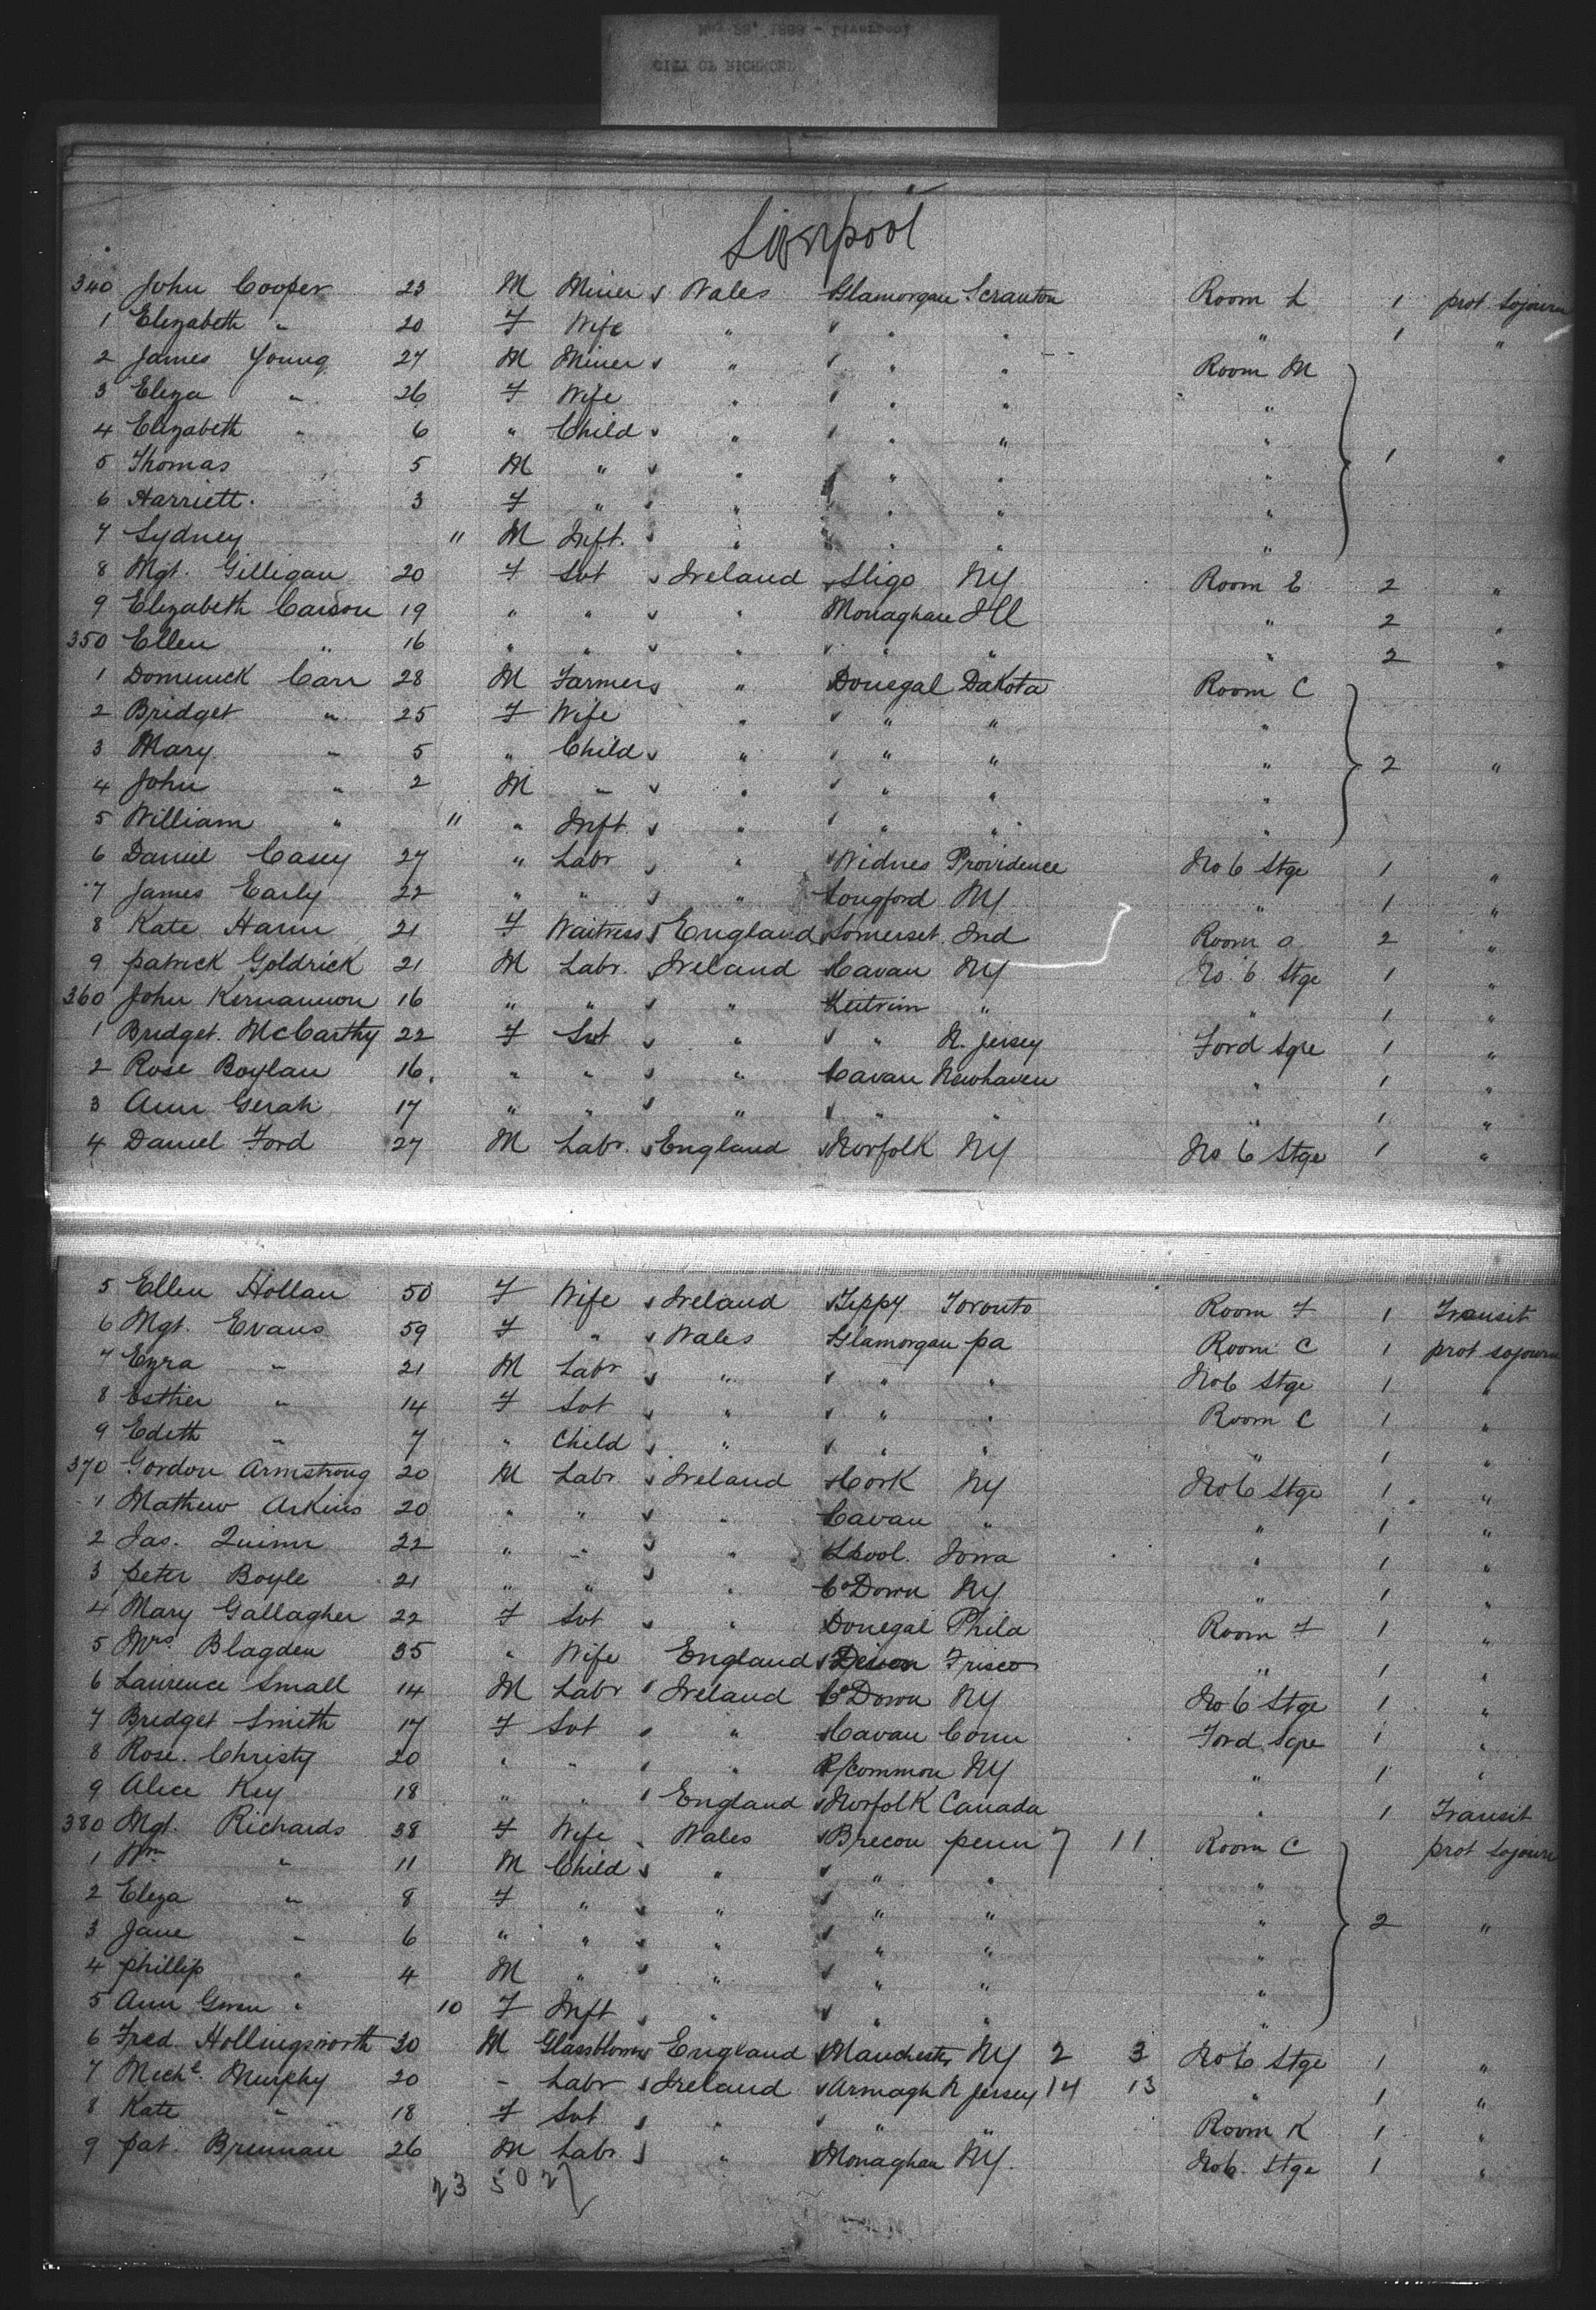 May 28, 1889 - Liverpool
CITY OF RICHMOND
Liverpool
340 John Cooper 23 M Miner Wales Glamorgan Scranton Room L 1 prot sojourn
1 Elizabeth " 20 F Wife " " " " 1 "
2 James Young 27 M Miner " " " Room M
3 Eliza " 26 F Wife " " " "
4 Elizabeth " 6 " Child " " " "
5 Thomas 5 M " " " " " 1 "
6 Harriett. 3 F " " " " "
7 Sydney " M Inft. " " " "
8 Mgt. Gilligan 20 F Svt Ireland Sligo NY Room E 2 "
9 Elizabeth Carson 19 " " " Monaghan Ill " 2 "
350 Ellen " 16 " " " " " " 2 "
1 Dominick Carr 28 M Farmer " Donegal Dakota Room C
2 Bridget " 25 F Wife " " " "
3 Mary " 5 " Child " " " " 2 "
4 John " 2 M " " " " "
5 William " " " Inft " " " "
6 Daniel Casey 27 " Labr " Widnes Providence No 6 Stge 1 "
7 James Early 22 " " " Longford NY " 1 "
8 Kate Hann 21 F Waitress England Somerset Ind Room a 2 "
9 patrick Goldrick 21 M Labr. Ireland Cavan NY No. 6 Stge 1 "
360 John Kernannon 16 " " " Leitrim " " 1 "
1 Bridget. McCarthy 22 F Svt " " N. Jersey Ford Sqre 1 "
2 Rose Boylan 16. " " " Cavan Newhaven " 1 "
3 Ann Gerah 17 " " " " " " 1 "
4 Daniel Ford 27 M Labr. England Norfolk NY No 6 Stge 1 "
5 Ellen Hollan 50 F Wife Ireland Tippy Toronto Room F 1 Transit
6 Mgt. Evans 59 F " Wales Glamorgan pa Room C 1 prot sojourn
7 Ezra " 21 M Labr " " " No 6 Stge 1 "
8 Esther " 14 F Svt " " " Room C 1 "
9 Edith " 7 " Child " " " " 1 "
370 Gordon Armstrong 20 M Labr Ireland Cork NY No 6 Stge 1 "
1 Mathew Arkins 20 " " " Cavan " " 1 "
2 Jas. Quinn 22 " " " Lpool. Iowa " 1 "
3 peter Boyle 21 " " " Co Down NY " 1 "
4 Mary Gallagher 22 F Svt " Donegal Phila Room F 1 "
5 Mrs. Blagden 35 " Wife England Devon Frisco " 1 "
6 Laurence Small 14 M Labr Ireland Co Down NY No 6 Stge 1 "
7 Bridget Smith 17 F Svt " Cavan Conn Ford Sqre 1 "
8 Rose. Christy 20 " " " R/common NY " 1 "
9 Alice Key 18 " " England Norfolk Canada " 1 Transit
380 Mgt. Richards 38 F Wife Wales Brecon penn 7 11 Room C prot sojourn
1 Wm " 11 M Child " " " "
2 Eliza " 8 F " " " " "
3 Jane " 6 " " " " " " 2 "
4 phillip " 4 M " " " " "
5 Ann Gwen " 10 F Inft " " " "
6 Fred Hollingsworth 30 M Glassblower England Manchester NY 2 3 No 6 Stge 1 "
7 Mechl. Murphy 20 " Labr Ireland Armagh N Jersey 14 13 " 1 "
8 Kate " 18 F Svt " " " Room K 1 "
9 pat. Brennan 26 M Labr " Monaghan NY. No 6 Stge 1 "
23 50 27